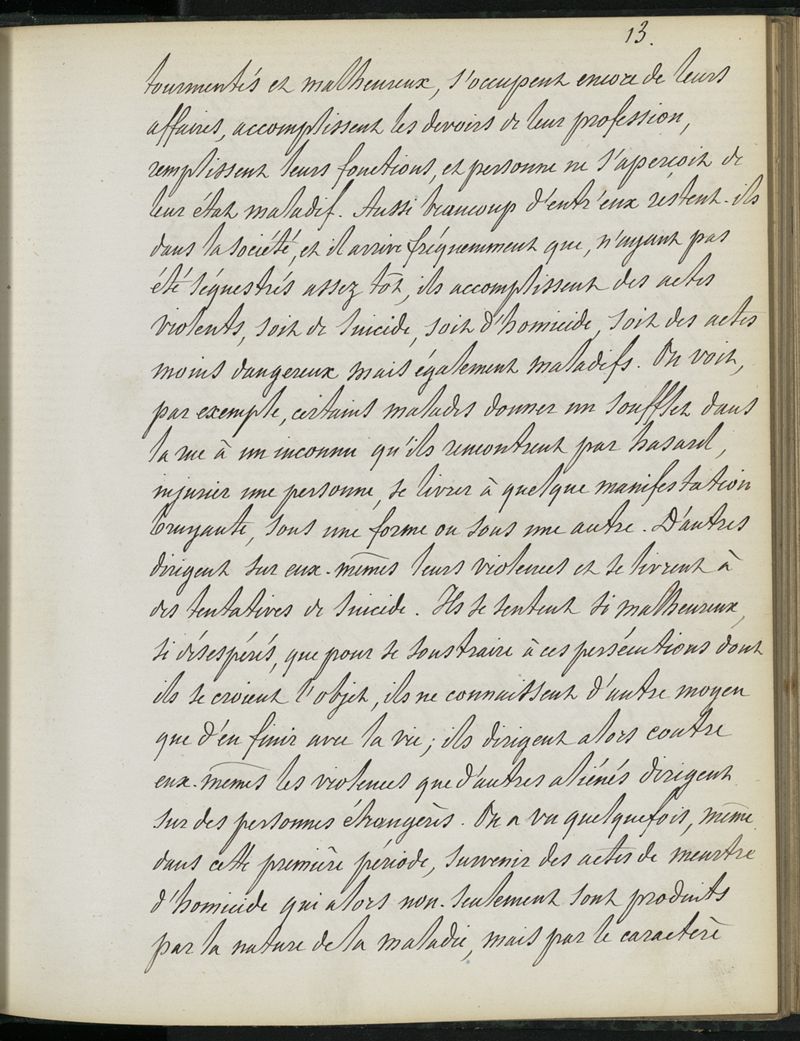 13.
tourmentés et malheureux, s'occupent encore de leurs
affaires, accomplissent les devoirs de leur profession,
remplissent leurs fonctions, et personne ne s'aperçoit de
leur état maladif. Aussi beaucoup d'entr'eux restent-ils
dans la société, et il arrive fréquemment que, n'ayant pas
été séquestrés assez tôt, ils accomplissent des actes
violents, soit de suicide, soit d'homicide, soit des actes
moins dangereux mais également maladifs. On voit,
par exemple, certains malades donner un soufflet dans
la rue à un inconnu qu'ils rencontrent par hasard,
injurier une personne, se livrer à quelque manifestation
bruyante, sous une forme ou sous une autre. D'autres
dirigent sur eux-mêmes leurs violences et se livrent à
des tentatives de suicide. Ils se sentent si malheureux,
si désespérés, que pour se soustraire à ces persécutions dont
ils se croient l'objet, ils ne connaissent d'autre moyen
que d'en finir avec la vie; ils dirigent alors contre
eux-mêmes les violences que d'autres aliénés dirigent
sur des personnes étrangères. On a vu quelquefois, même
dans cette première période, survenir des actes de meurtre
d'homicide qui alors non-seulement sont produits
par la nature de la maladie, mais par le caractère